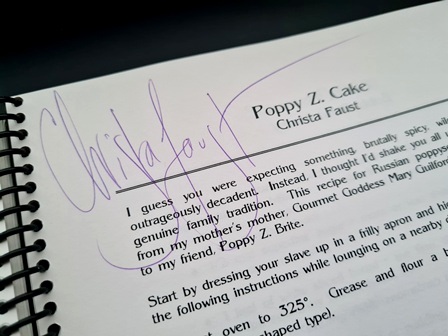 Christa Faust
Poppy Z. Cake
Christa Faust
I guess you were expecting something, brutally spicy,
outrageously decadent. Instead, I thought I'd shake you all
genuine family tradition. This recipe for Russian
from my mother's mother, Gourmet Goddess Mary
to my friend, Poppy Z. Brite.
Start by dressing your slave up in a frilly apron and
the following instructions while lounging on a nearby
oven to 325°. Grease and flour a
shaped type).